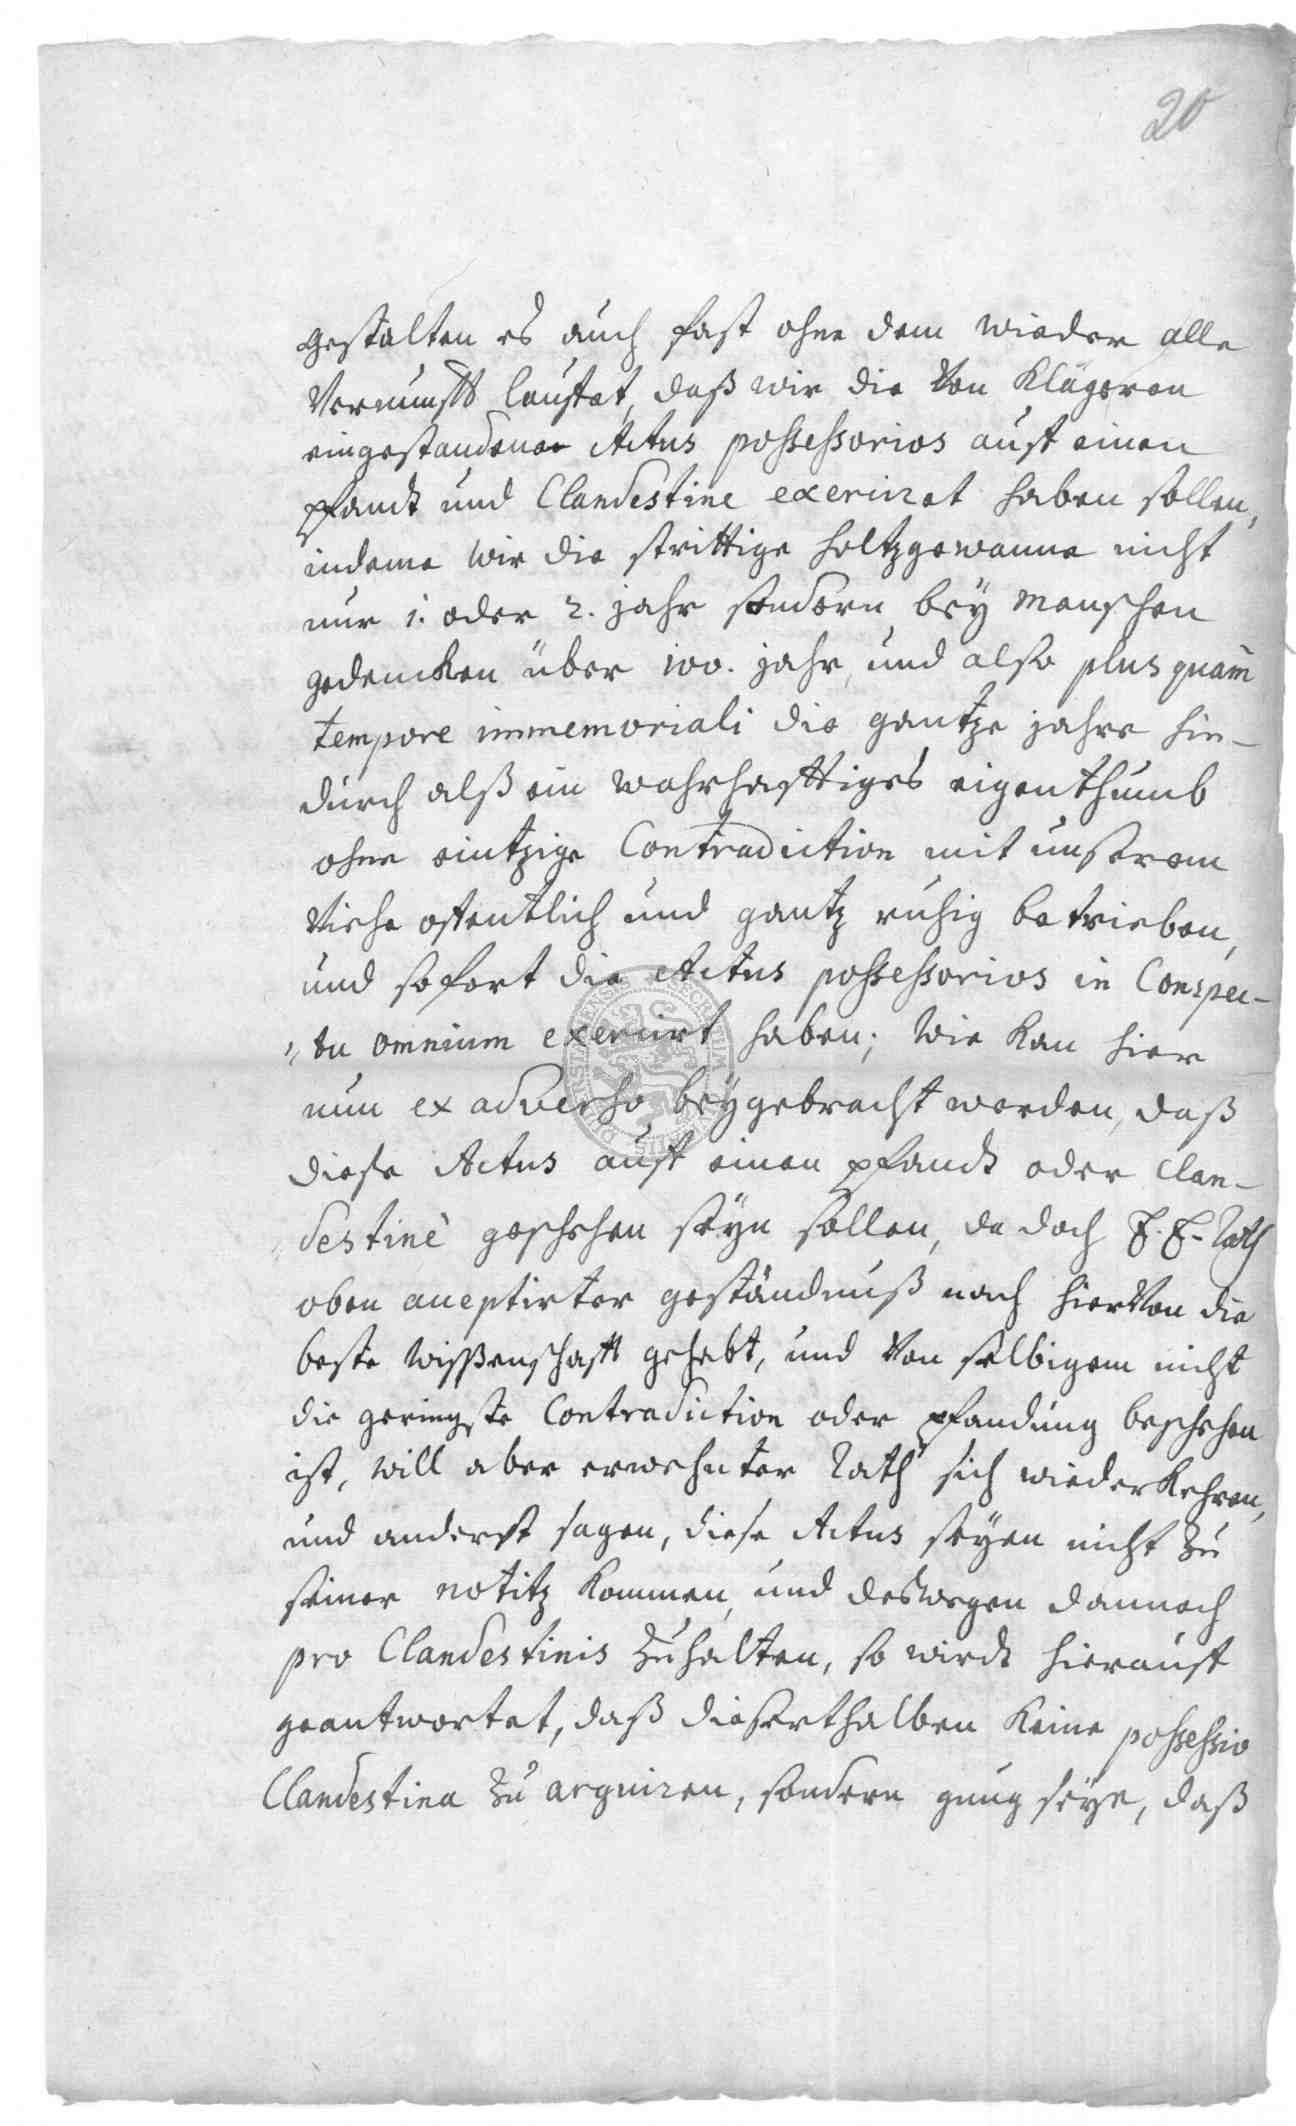 20
gestalten es auch fast ohne dem wieder alle
Vernunfft lauffet, daß wir die Von Klägeren
eingestandene Actus possessorios auff einen
pfandt und Clandestine exerciret haben sollen,
indeme wir die strittige holtzgewanne nicht
nur 1. oder 2. jahr sondern bey Menschen
gedencken über 100. jahr, und also plus quam
tempore immemoriali die gantze jahre hin-
durch alß ein wahrhafftiges eigenthumb
ohne eintzige Contradiction mit unserem
Viehe offentlich und gantz ruhig betrieben,
und sofort die Actus possessorios in Conspec-
tu omnium exercirt haben; wie kan hier
nun ex adverso beygebracht werden, daß
diese Actus auff einen pfandt oder Clan-
destinè geschehen seyn sollen, da doch E. E. Rath
oben acceptirter geständnuß nach hierVon die
beste Wissenschafft gehabt, und Von selbigem nicht
die geringste Contradiction oder pfandung beschehen
ist, will aber erwehnter Rath sich wiederkehren,
und anderst sagen, diese Actus seyen nicht zu
seiner notitz kommen, und deswegen dannoch
pro Clandestinis zuhalten, so wirdt hierauff
geantwortet, daß dieserthalben keine possessio
Clandestina zu arguiren, sondern gnug seye, daß